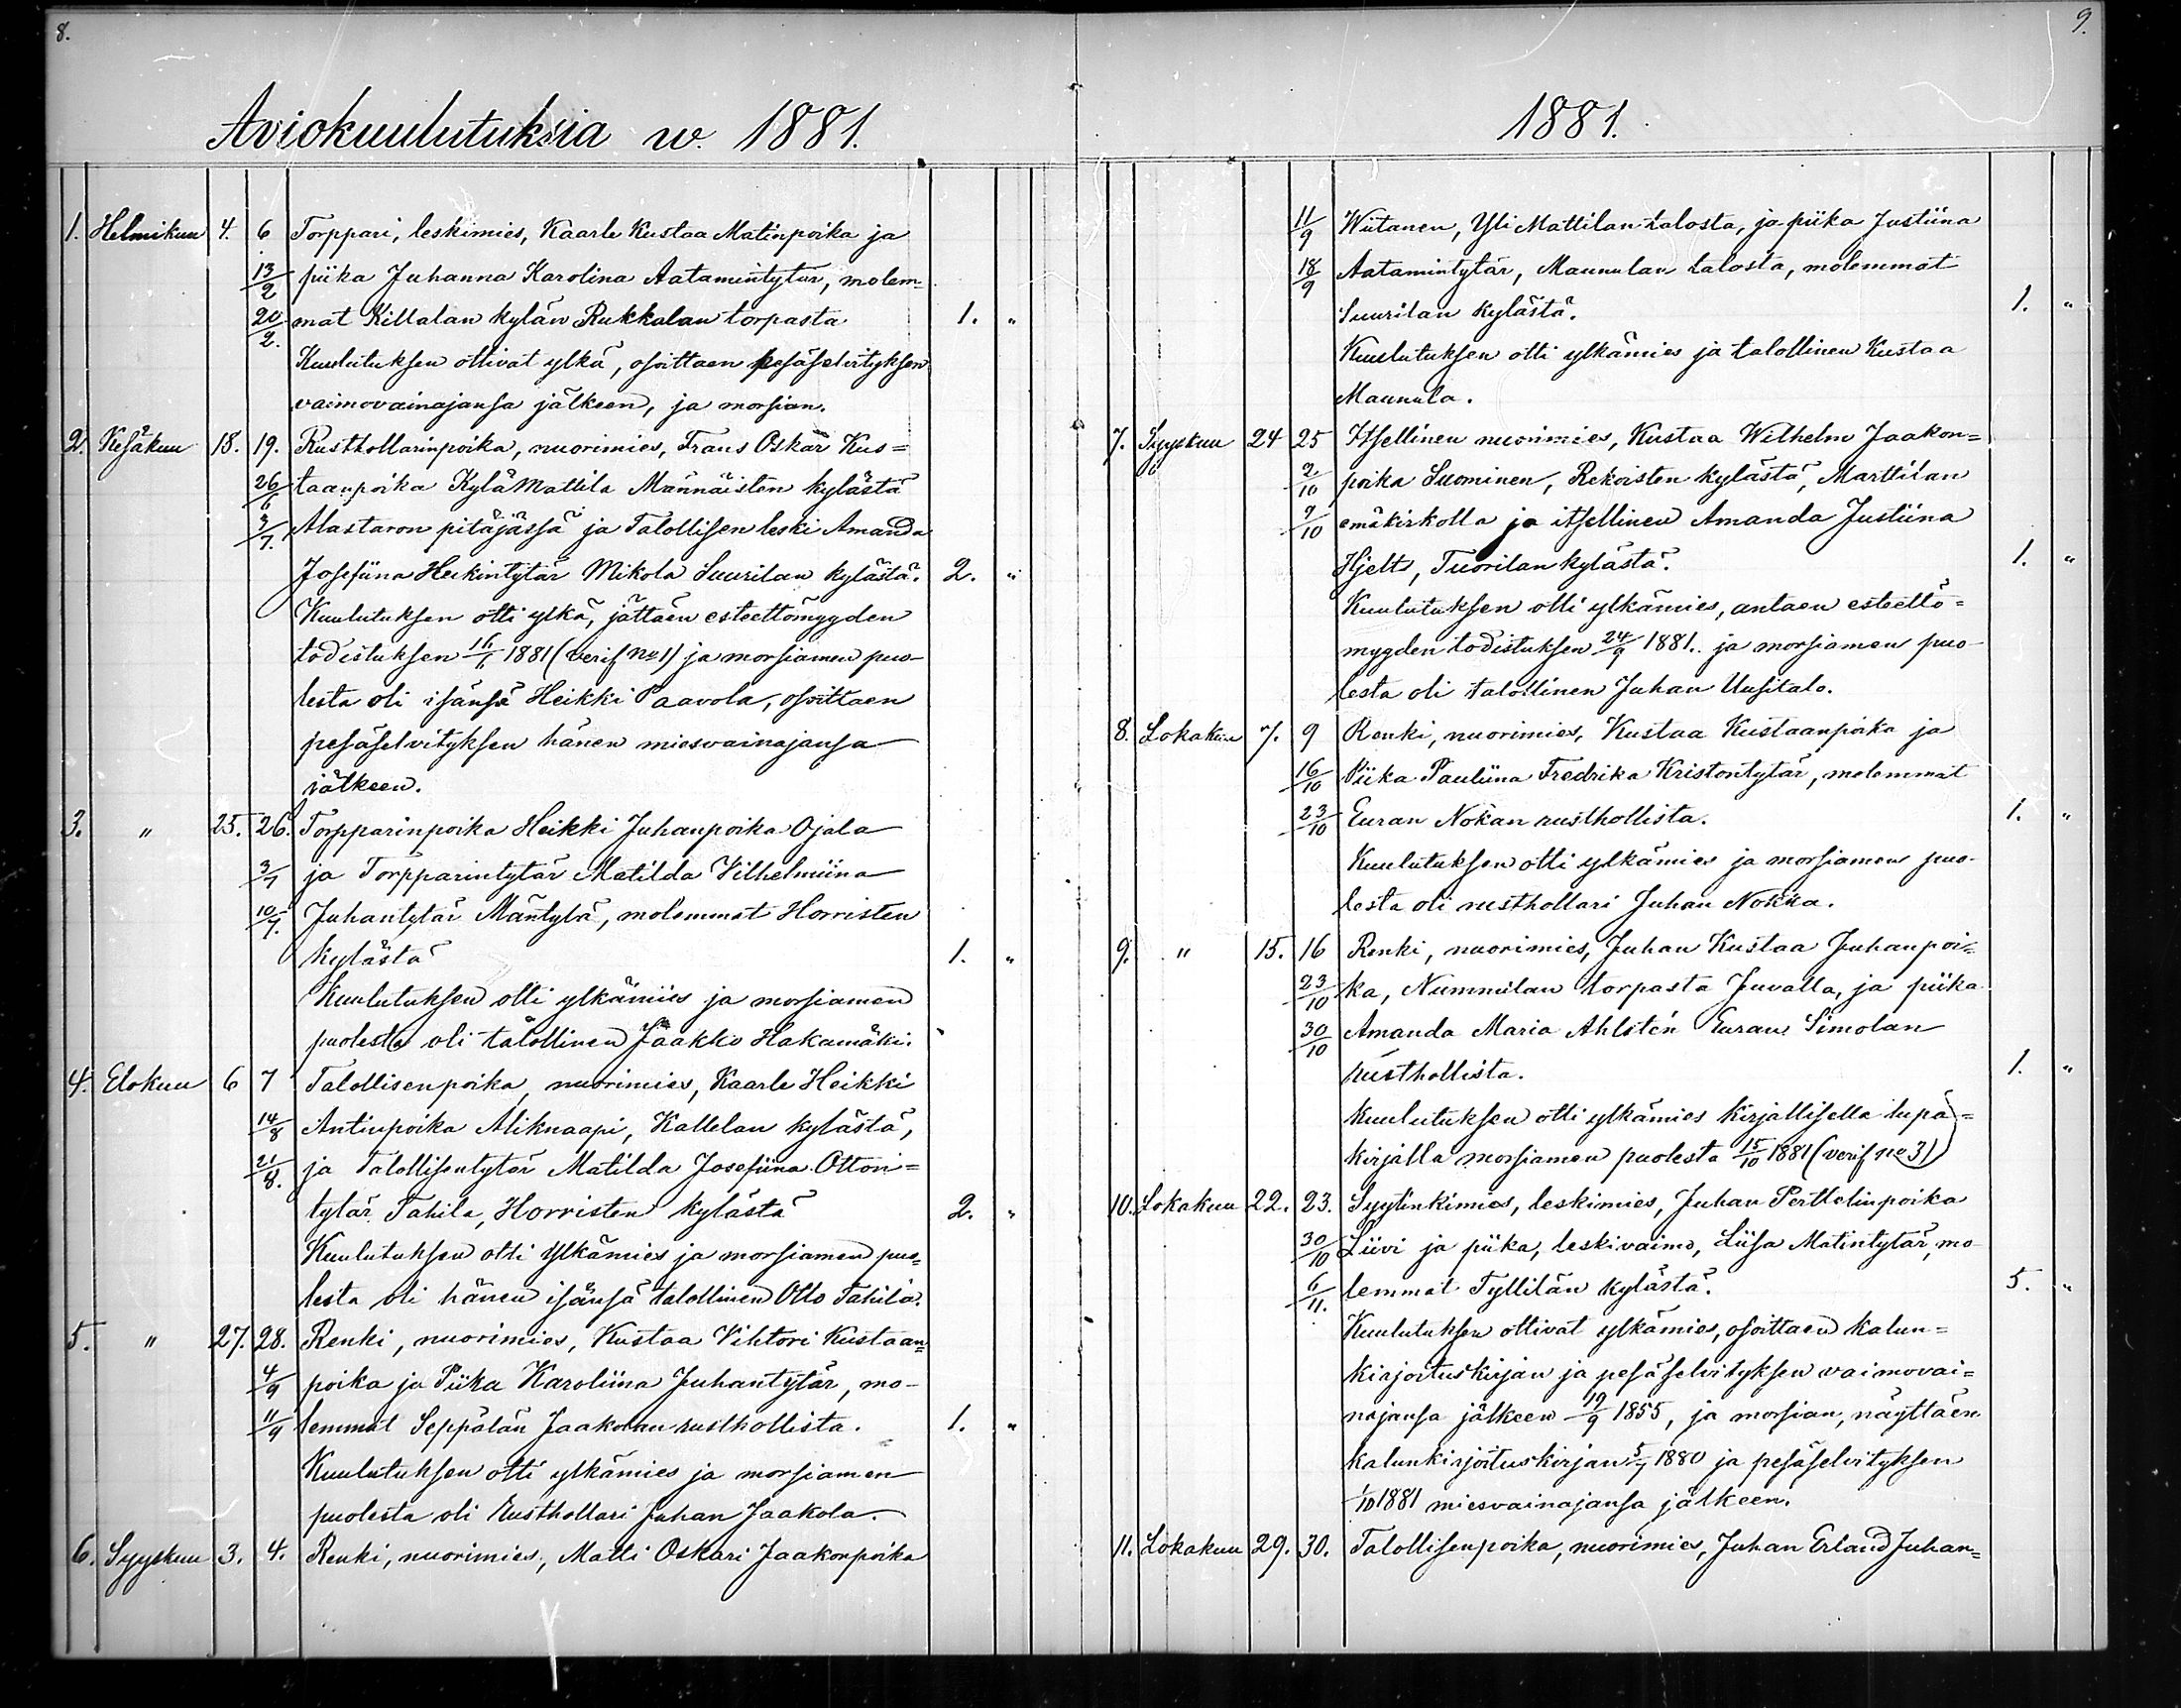 8.
Aviokuulutuksia w. 1881.
1. Helmikuu 4. 6 Torppari, leskimies, Kaarle Kustaa Matinpoika ja
13/2 piika Juhanna Karolina Aatamintytär, molem=
20/2. mat Killalan kylän Rukkalan torpasta 1. "
Kuulutuksen ottivat ylkä, osoittaen pesäselvityksen
vaimovainajansa jälkeen, ja morsian.
2. Kesäkuu 18. 19. Rusthollarinpoika, nuorimies, Frans Oskar Kus=
26/6 taanpoika KyläMattila Männäisten kylästä
3/7. Alastaron pitäjässä ja Talollisen leski Amanda
Josefiina Heikintytär Mikola Suurilan kylästä. 2. "
Kuulutuksen otti ylkä, jättäen esteettömyyden
todistuksen 16/6 1881 (verif No 1) ja morsiamen puo-
lesta oli isänsä Heikki Paavola, osoittaen
pesäselvityksen hänen miesvainajansa
jälkeen.
3. " 25. 26. Torpparinpoika Heikki Juhanpoika Ojala
3/7 ja Torpparintytär Matilda Vilhelmiina
10/7. Juhantytär Mäntylä, molemmat Horristen
kylästä 1. "
Kuulutuksen otti ylkämies ja morsiamen
puolesta oli talollinen Jaakko Hakamäki.
4. Elokuu 6 7 Talollisenpoika, nuorimies, Kaarle Heikki
14/8 Antinpoika Aliknaapi, Kallelan kylästä,
21/8. ja Talollisentytär Matilda Josefiina Otton=
tytär Tahila, Horristen kylästä 2. "
Kuulutuksen otti Ylkämies ja morsiamen puo=
lesta oli hänen isänsä talollinen Otto Tahila.
5. " 27. 28. Renki, nuorimies, Kustaa Vihtori Kustaan=
4/9 poika ja Piika Karoliina Juhantytär, mo-
11/9 lemmat Seppälän Jaakolan rusthollista. 1. "
Kuulutuksen otti ylkämies ja morsiamen
puolesta oli Rusthollari Juhan Jaakola.
6. Syyskuu 3. 4. Renki, nuorimies, Matti Oskari Jaakonpoika
9.
1881.
11/9 Wiitanen, Yli Mattilan talosta, ja piika Justiina
18/9 Aatamintytär, Maunulan talosta, molemmat
Suurilan kylästä. 1. "
Kuulutuksen otti ylkämies ja talollinen Kustaa
Maunula.
7. Syyskuu 24 25 Itsellinen nuorimies, Kustaa Wilhelm Jaakon=
2/10 poika Suominen, Rekoisten kylästä, Marttilan
9/10 emäkirkolla ja itsellinen Amanda Justiina
Hjelt, Tuorilan kylästä. 1. "
Kuulutuksen otti ylkämies, antaen esteettö=
myyden todistuksen 24/9 1881. ja morsiamen puo-
lesta oli talollinen Juhan Uusitalo.
8. Lokakuu 7. 9 Renki, nuorimies, Kustaa Kustaanpoika ja
16/10 Piika Pauliina Fredrika Kristontytär, molemmat
23/10 Euran Nokan rusthollista. 1. "
Kuulutuksen otti ylkämies ja morsiamen puo-
lesta oli rusthollari Juhan Nokka.
9. " 15. 16 Renki, nuorimies, Juhan Kustaa Juhanpoi=
23/10 ka, Nummilan torpasta Juvalla, ja piika
30/10 Amanda Maria Ahlstén Euran Simolan
rusthollista. 1. "
Kuulutuksen otti ylkämies kirjallisella lupa=
kirjalla morsiamen puolesta 15/10 1881 (verif no 3)
10. Lokakuu 22. 23. Syytinkimies, leskimies, Juhan Perttelinpoika
30/10 Liivi ja piika, leskivaimo, Liisa Matintytär, mo-
6/11. lemmat Tyllilän kylästä. 5. "
Kuulutuksen ottivat ylkämies, osoittaen kalun=
kirjoituskirjan ja pesäselvityksen vaimovai=
najansa jälkeen 19/9 1855, ja morsian, näyttäen
kalunkirjoituskirjan 5/7 1880 ja pesäselvityksen
1/10 1881 miesvainajansa jälkeen.
11. Lokakuu 29. 30. Talollisenpoika, nuorimies, Juhan Erland Juhan=